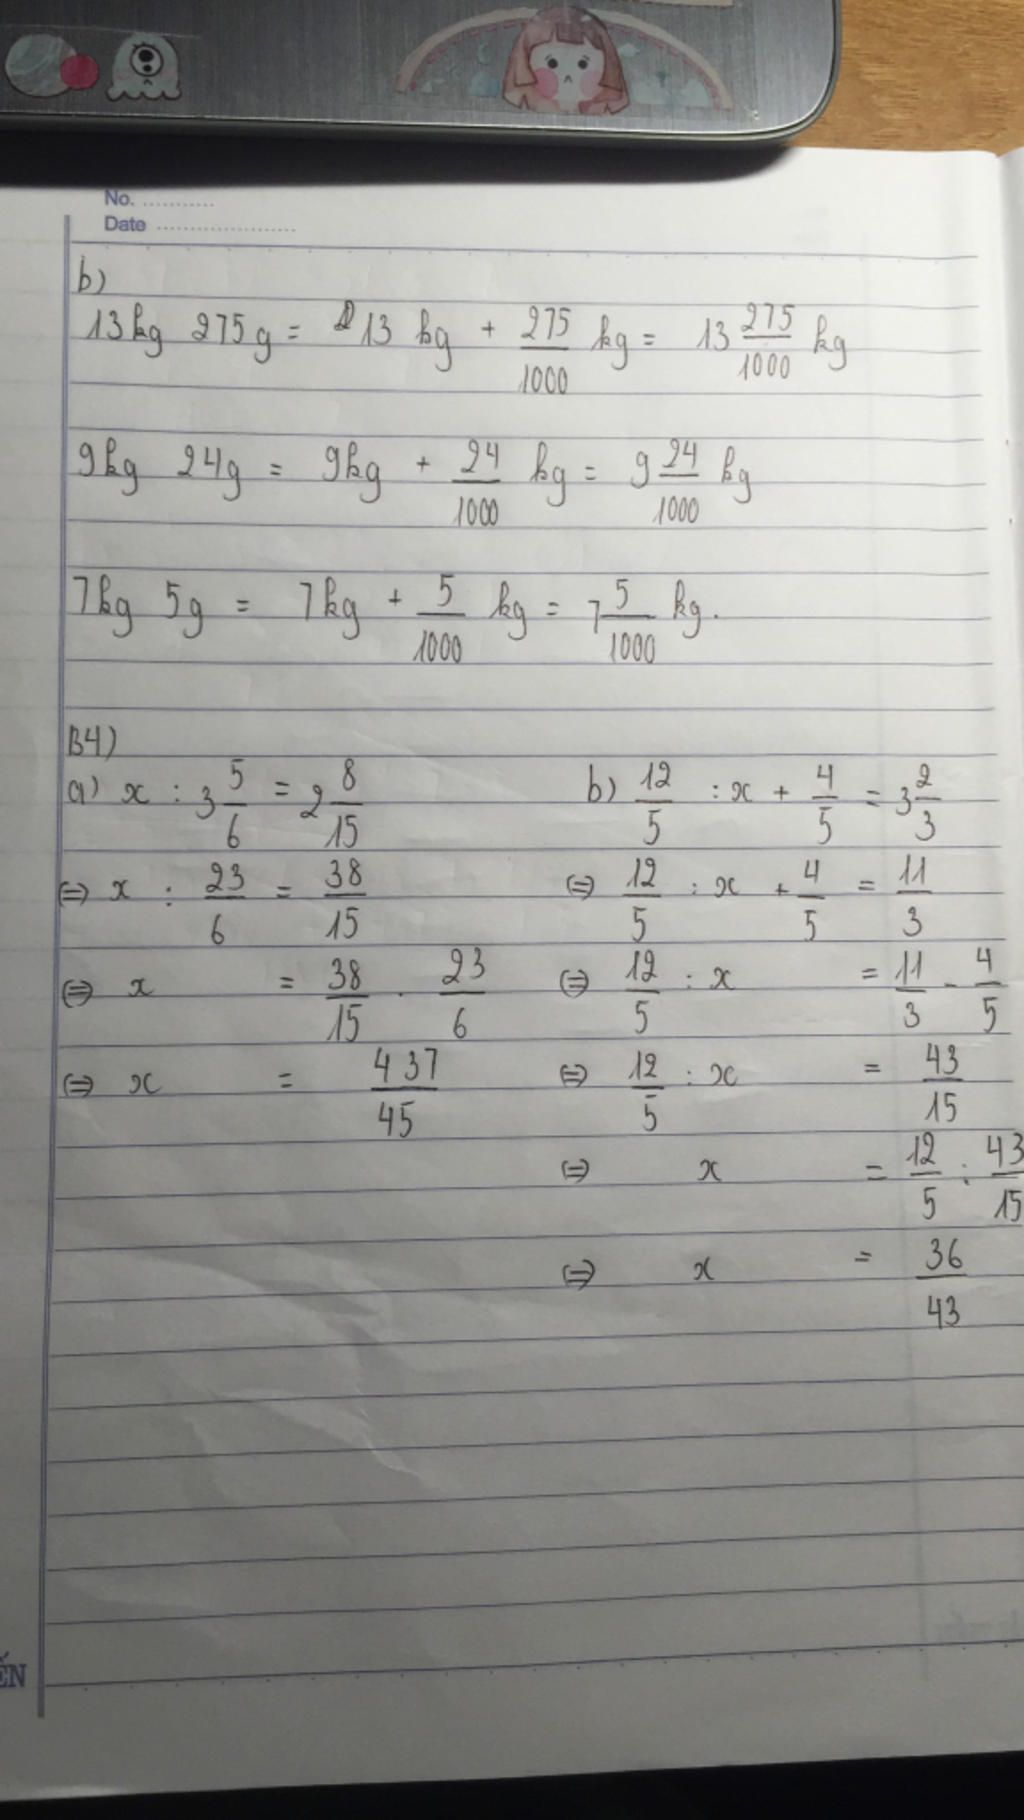 No. ............
Date ......................
b)
13kg 275g = 13 kg + 275/1000 kg = 13 275/1000 kg
9kg 24g = 9kg + 24/1000 kg = 9 24/1000 kg
7kg 5g = 7kg + 5/1000 kg = 7 5/1000 kg.
B4)
a) x : 3 5/6 = 2 8/15
b) 12/5 : x + 4/5 = 3 2/3
⇔ x : 23/6 = 38/15
⇔ 12/5 : x + 4/5 = 11/3
⇔ x = 38/15 . 23/6
⇔ 12/5 : x = 11/3 - 4/5
⇔ x = 437/45
⇔ 12/5 : x = 43/15
⇔ x = 12/5 : 43/15
⇔ x = 36/43
ẾN